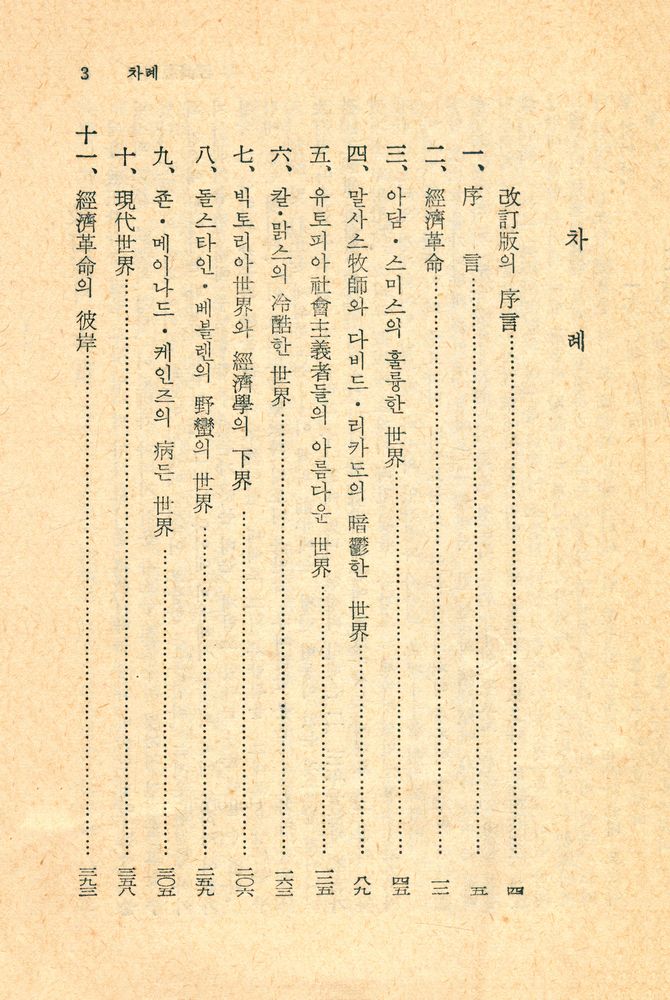 3 차례
차 례
改訂版의 序言……四
一、序 言……五
二、經濟革命……一二
三、아담・스미스의 훌륭한 世界……四五
四、말사스牧師와 다비드・리카도의 暗鬱한 世界……八九
五、유토피아社會主義者들의 아름다운 世界……一二五
六、칼・맑스의 冷酷한 世界……一六三
七、빅토리아世界와 經濟學의 下界……二〇六
八、돌스타인・베블렌의 野蠻의 世界……二五九
九、죤・메이나드・케인즈의 病든 世界……三〇五
十、現代世界……三五八
十一、經濟革命의 彼岸……三九三